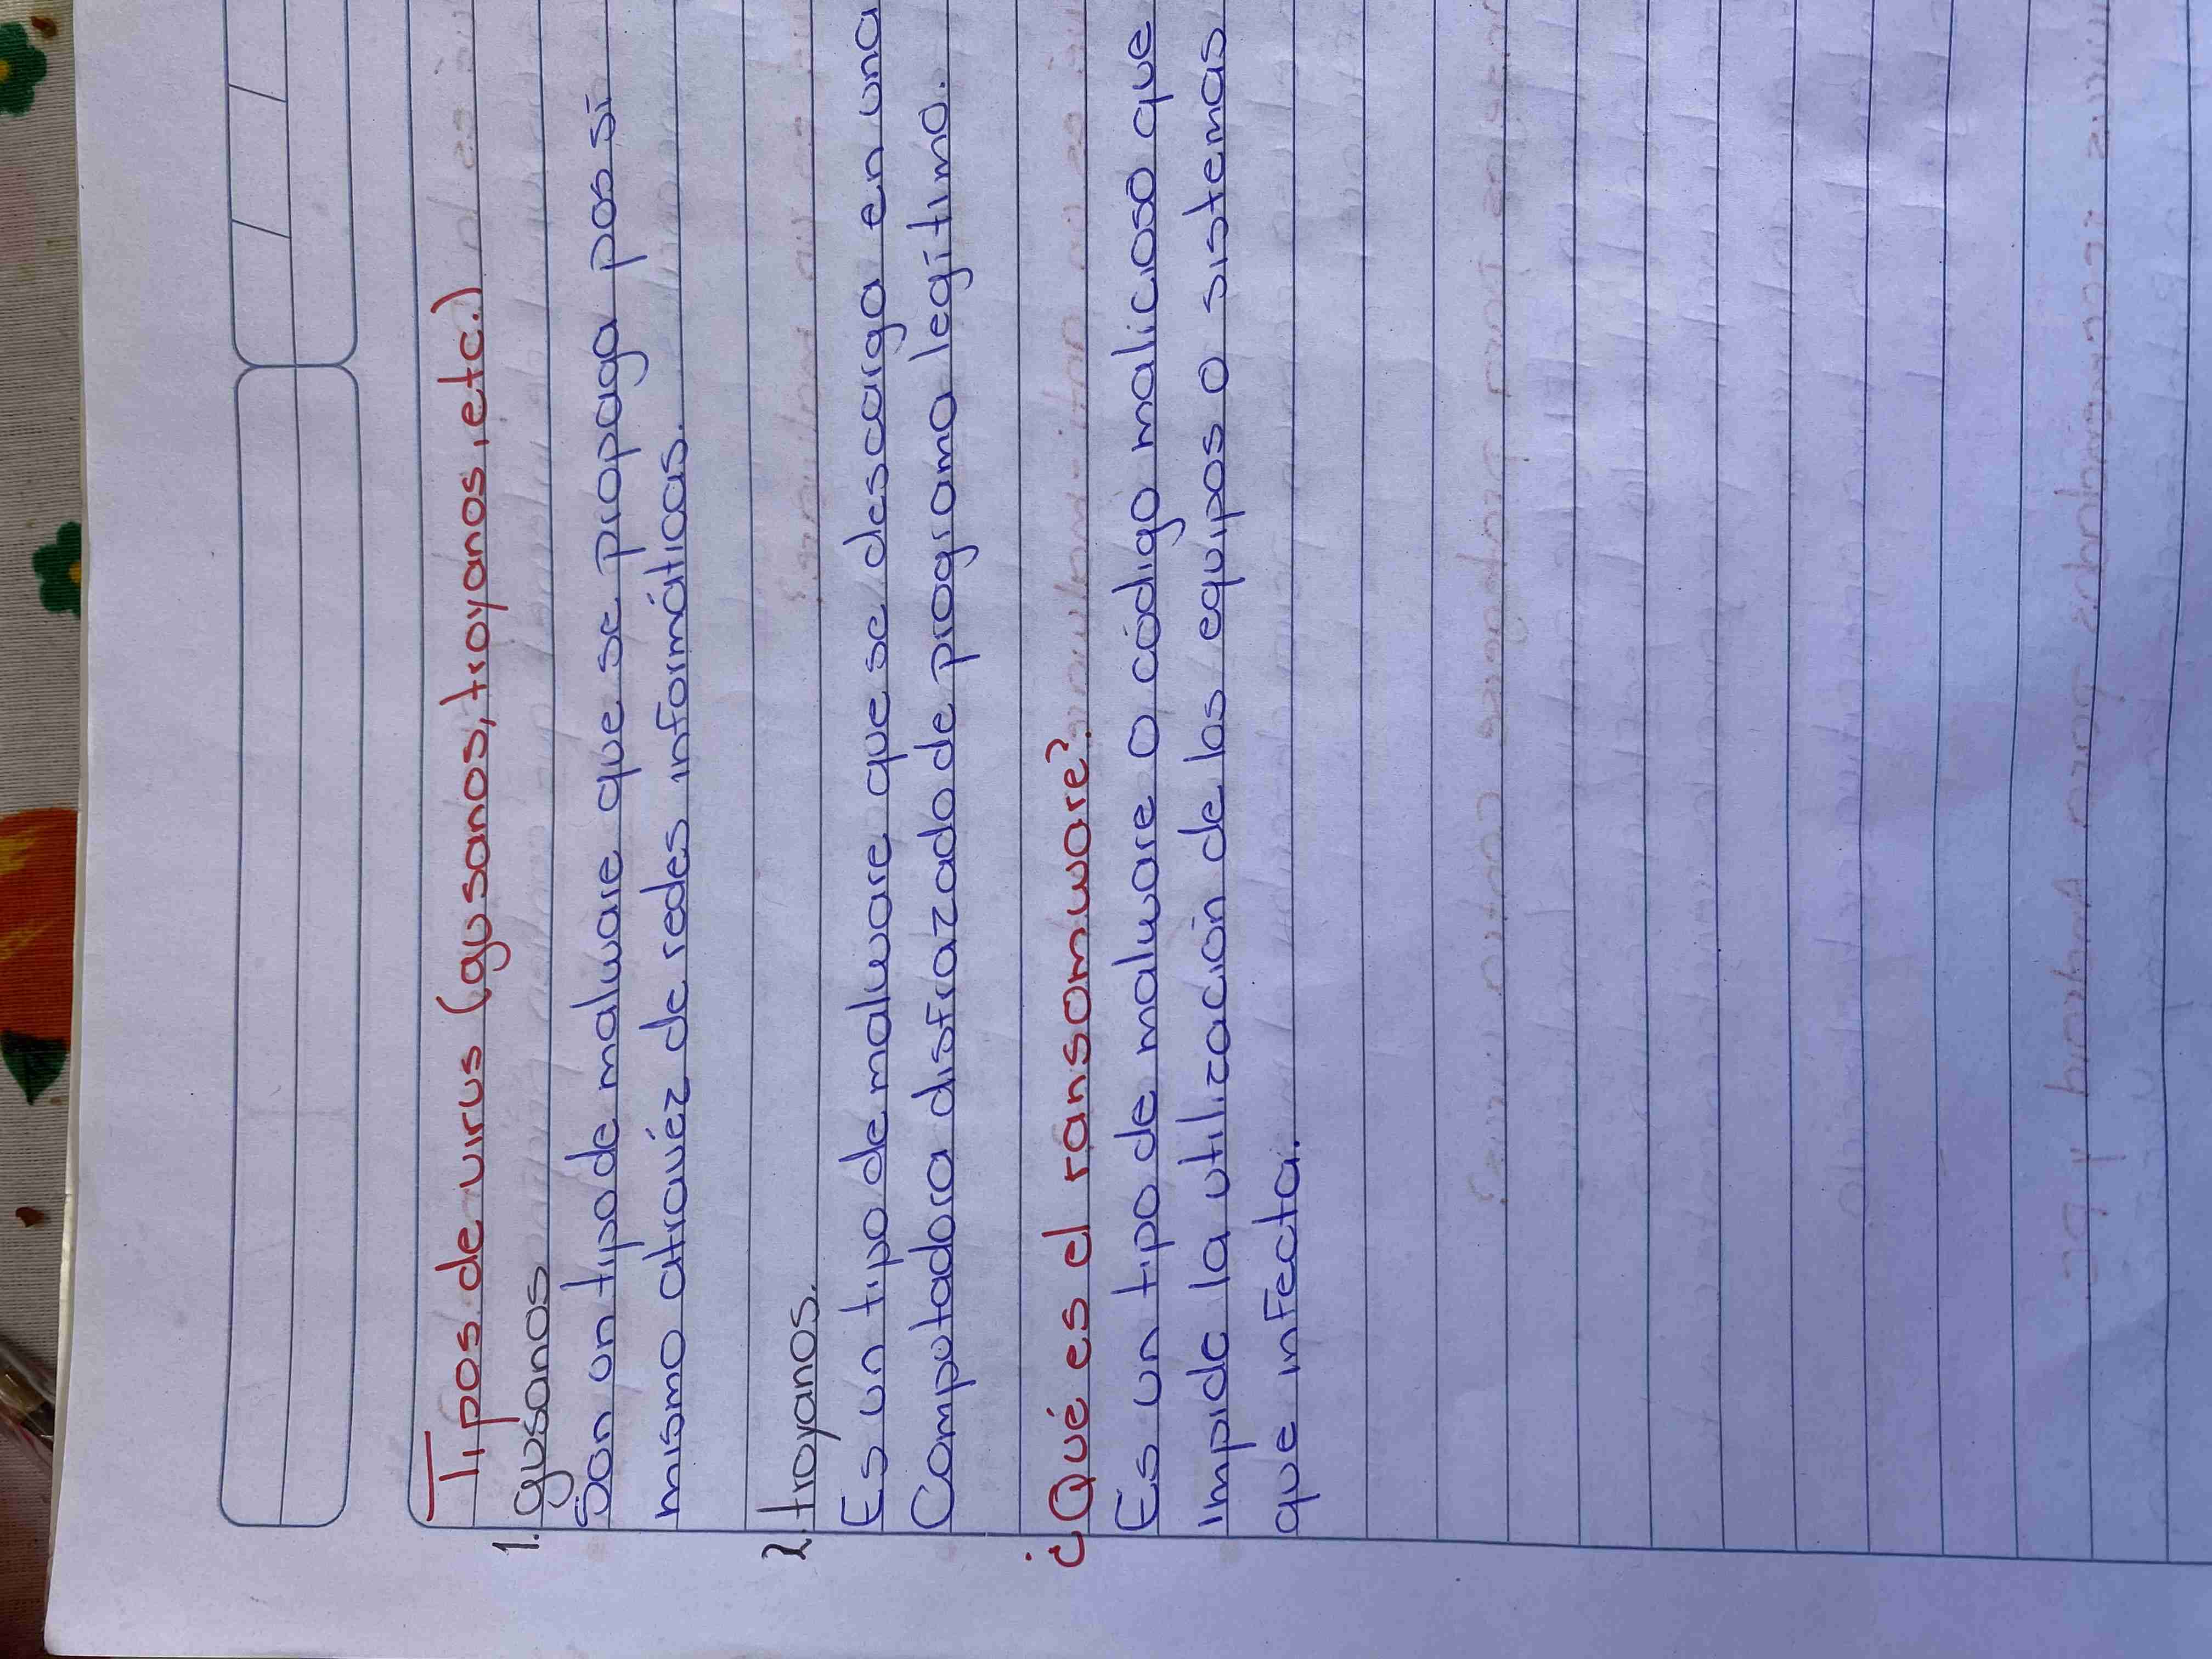 Tipos de virus (gusanos, troyanos, etc.)
1. gusanos
Son un tipo de malware que se propaga pos si
mismo atravéz de redes informáticas.
2. troyanos.
Es un tipo de malware que se descarga en una
Computadora disfrazado de programa legítimo.
¿Qué es el ransomware?
Es un tipo de malware o código malicioso que
impide la utilización de los equipos o sistemas
que infecta.